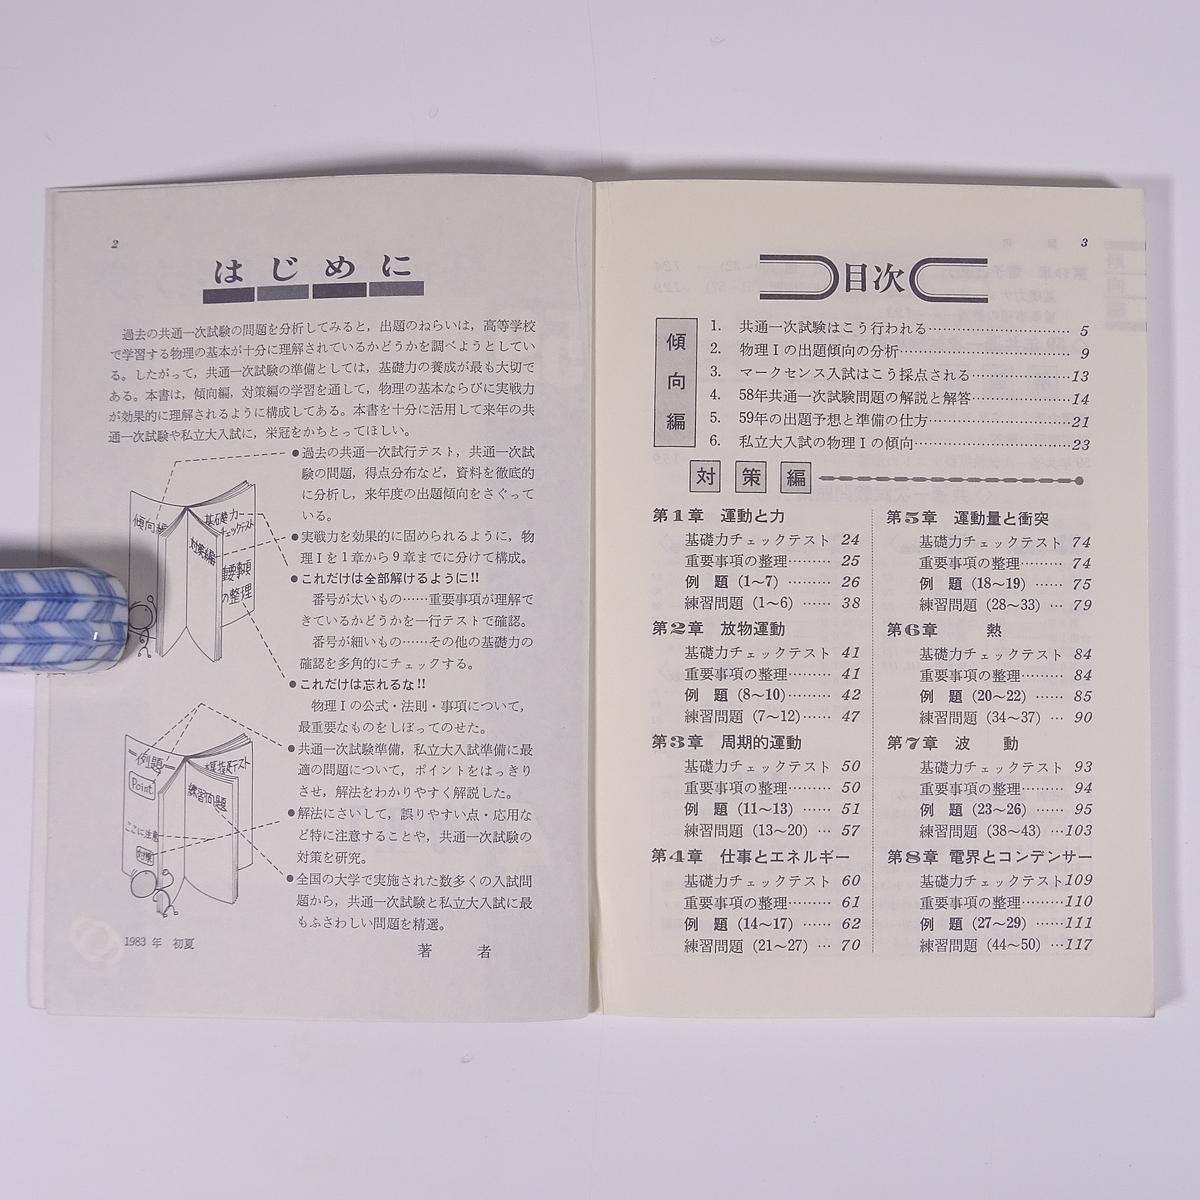 2
はじめに
過去の共通一次試験の問題を分析してみると，出題のねらいは，高等学校
で学習する物理の基本が十分に理解されているかどうかを調べようとしてい
る。したがって，共通一次試験の準備としては，基礎力の養成が最も大切で
ある。本書は，傾向編，対策編の学習を通して，物理の基本ならびに実戦力
が効果的に理解されるように構成してある。本書を十分に活用して来年の共
通一次試験や私立大入試に，栄冠をかちとってほしい。
●過去の共通一次試行テスト，共通一次試
験の問題，得点分布など，資料を徹底的
に分析し，来年度の出題傾向をさぐって
いる。
●実戦力を効果的に固められるように，物
理Ⅰを1章から9章までに分けて構成。
●これだけは全部解けるように!!
番号が太いもの……重要事項が理解で
きているかどうかを一行テストで確認。
番号が細いもの……その他の基礎力の
確認を多角的にチェックする。
●これだけは忘れるな!!
物理Ⅰの公式・法則・事項について，
最重要なものをしぼってのせた。
●共通一次試験準備，私立大入試準備に最
適の問題について，ポイントをはっきり
させ，解法をわかりやすく解説した。
●解法にさいして，誤りやすい点・応用な
ど特に注意することや，共通一次試験の
対策を研究。
●全国の大学で実施された数多くの入試問
題から，共通一次試験と私立大入試に最
もふさわしい問題を精選。
傾向編
対策編
基礎力
チェックテスト
重要事項
の整理
例題
Point
ここに注意
対策
練習問題
1983年 初夏
著 者
3
目次
傾向編
1. 共通一次試験はこう行われる…………5
2. 物理Ⅰの出題傾向の分析…………9
3. マークセンス入試はこう採点される…………13
4. 58年共通一次試験問題の解説と解答…………14
5. 59年の出題予想と準備の仕方…………21
6. 私立大入試の物理Ⅰの傾向…………23
対策編
第1章 運動と力
基礎力チェックテスト 24
重要事項の整理………25
例 題 (1〜7)………26
練習問題 (1〜6)……38
第2章 放物運動
基礎力チェックテスト 41
重要事項の整理………41
例 題 (8〜10)………42
練習問題 (7〜12)……47
第3章 周期的運動
基礎力チェックテスト 50
重要事項の整理………50
例 題 (11〜13)……51
練習問題 (13〜20)…57
第4章 仕事とエネルギー
基礎力チェックテスト 60
重要事項の整理………61
例 題 (14〜17)……62
練習問題 (21〜27)…70
第5章 運動量と衝突
基礎力チェックテスト 74
重要事項の整理………74
例 題 (18〜19)……75
練習問題 (28〜33)…79
第6章 熱
基礎力チェックテスト 84
重要事項の整理………84
例 題 (20〜22)……85
練習問題 (34〜37)…90
第7章 波 動
基礎力チェックテスト 93
重要事項の整理………94
例 題 (23〜26)……95
練習問題 (38〜43)…103
第8章 電界とコンデンサー
基礎力チェックテスト109
重要事項の整理………110
例 題 (27〜29)……111
練習問題 (44〜50)…117